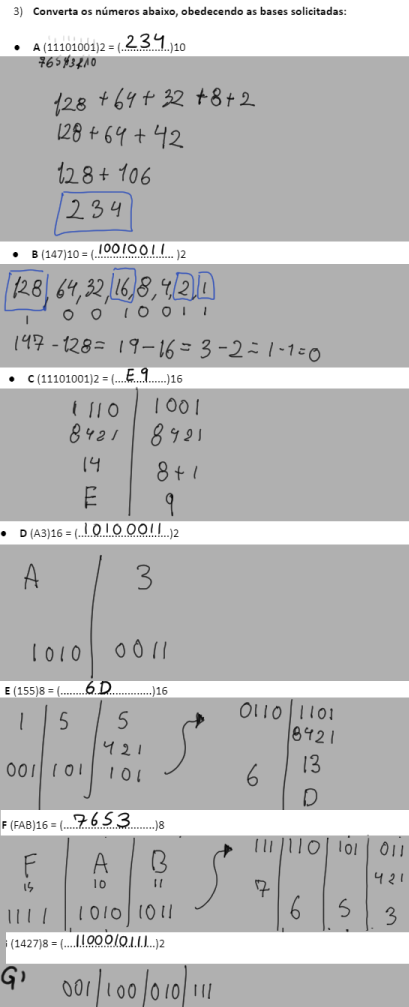 3) Converta os números abaixo, obedecendo as bases solicitadas:
• A (11101001)2 = (..234..)10
76543210
128 + 64 + 32 + 8 + 2
128 + 64 + 42
128 + 106
234
• B (147)10 = (..10010011..)2
128, 64, 32, 16, 8, 4, 2, 1
1 0 0 1 0 0 1 1
147 - 128 = 19 - 16 = 3 - 2 = 1 - 1 = 0
• C (11101001)2 = (..E9..)16
1110 | 1001
8421 | 8421
14 | 8 + 1
E | 9
• D (A3)16 = (..10100011..)2
A | 3
1010 | 0011
E (155)8 = (..6D..)16
1 | 5 | 5 0110 | 1101
421 8421
001 | 101 | 101 6 13
D
F (FAB)16 = (..7653..)8
F | A | B 111 | 110 | 101 | 011
15 10 11 421
1111 | 1010 | 1011 7 6 5 3
(1427)8 = (..1100010111..)2
G) 001 | 100 | 010 | 111